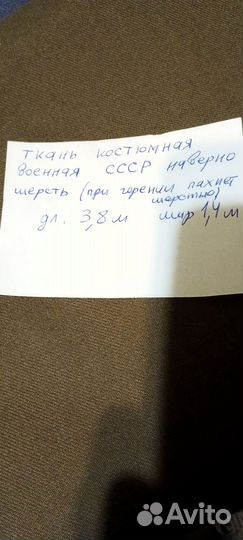 ткань костюмная
военная СССР наверно
шерсть (при горении пахнет
шерстью)
дл. 3,8 м шир 1,4 м
Avito